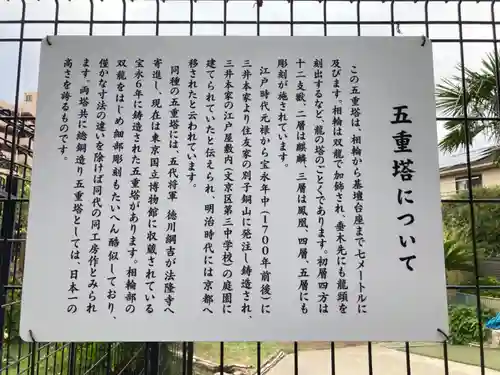 五重塔について
この五重塔は、相輪から基壇台座まで七メートルに
及びます。相輪は双龍で加飾され、垂木先にも龍頭を
刻出するなど、龍の塔のごとくであります。初層四方は
十二支獣、二層は麒麟、三層は鳳凰、四層、五層にも
彫刻が施されています。
江戸時代元禄から宝永年中(1700年前後)に
三井本家より住友家の別子銅山に発注し鋳造され、
三井本家の江戸屋敷内(文京区第三中学校)の庭園に
建てられていたと伝えられ、明治時代には京都へ
移されたと云われています。
同種の五重塔には、五代将軍 徳川綱吉が法隆寺へ
寄進し、現在は東京国立博物館に収蔵されている
宝永6年に鋳造された五重塔があります。相輪部の
双龍をはじめ細部彫刻もたいへん酷似しており、
僅かな寸法の違いを除けば同代の同工房作とみられ
ます。両塔共に總銅造り五重塔としては、日本一の
高さを誇るものです。